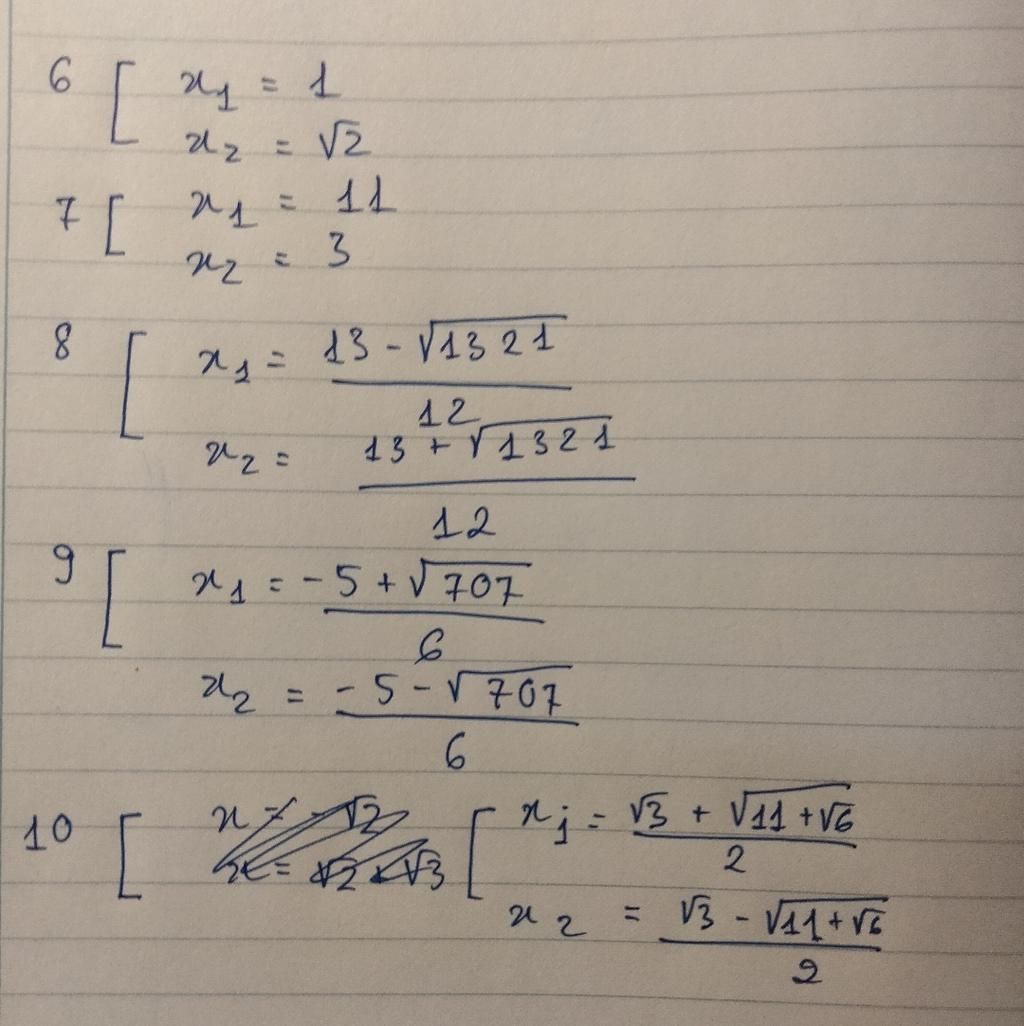 6 [ x₁ = 1
x₂ = √2
7 [ x₁ = 11
x₂ = 3
8 [ x₁ = (13 - √1321)/12
x₂ = (13 + √1321)/12
9 [ x₁ = (-5 + √707)/6
x₂ = (-5 - √707)/6
10 [ [ x₁ = (√3 + √(11 + √6))/2
x₂ = (√3 - √(11 + √6))/2